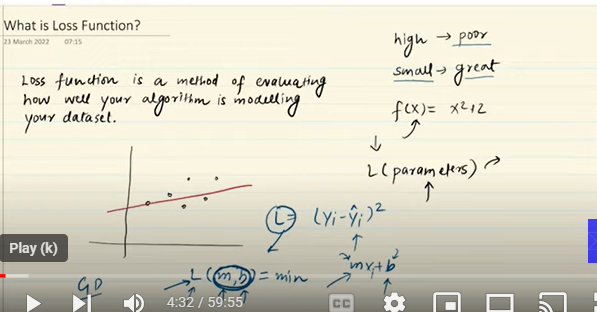 What is Loss Function?
23 March 2022 07:15
Loss function is a method of evaluating
how well your algorithm is modelling
your dataset.
high → poor
small → great
f(x) = x²+2
L(parameters)
L = (yi - ŷi)²
mxi + b
L (m, b) = min
GD
Play (k)
4:32 / 59:55
CC
HD